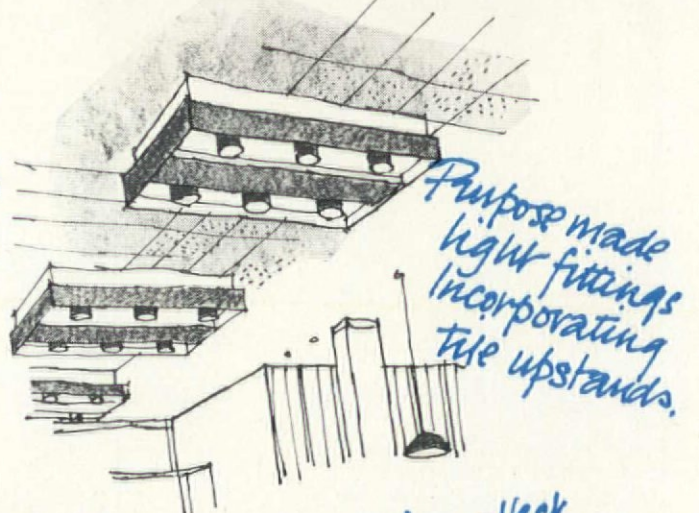 Purpose made
light fittings
Incorporating
tile upstands.